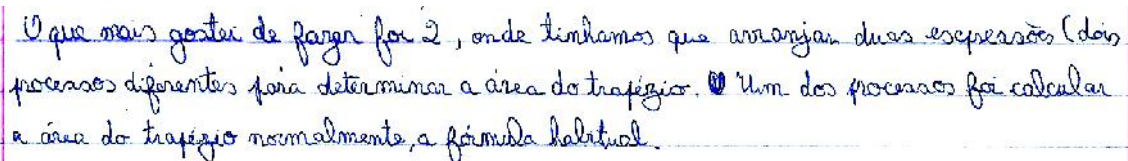 O que mais gostei de fazer foi 2, onde tinhamos que arranjar duas expressões (dois
processos diferentes para determinar a área do trapézio. Um dos processos foi calcular
a área do trapézio normalmente, a fórmula habitual.